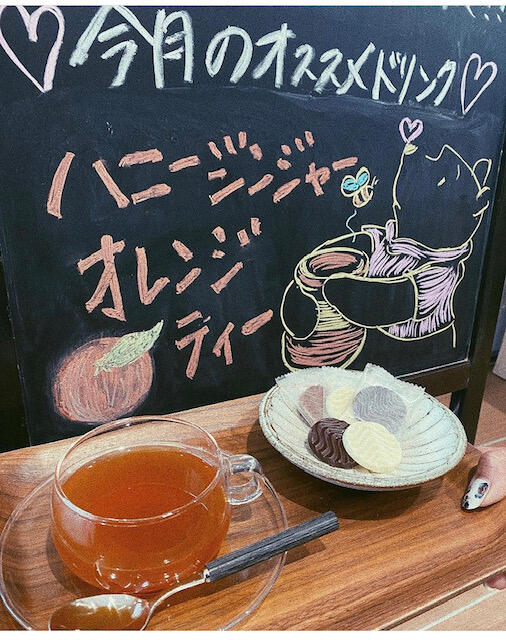 今月のオススメドリンク
ハニージンジャー
オレンジ
ティー